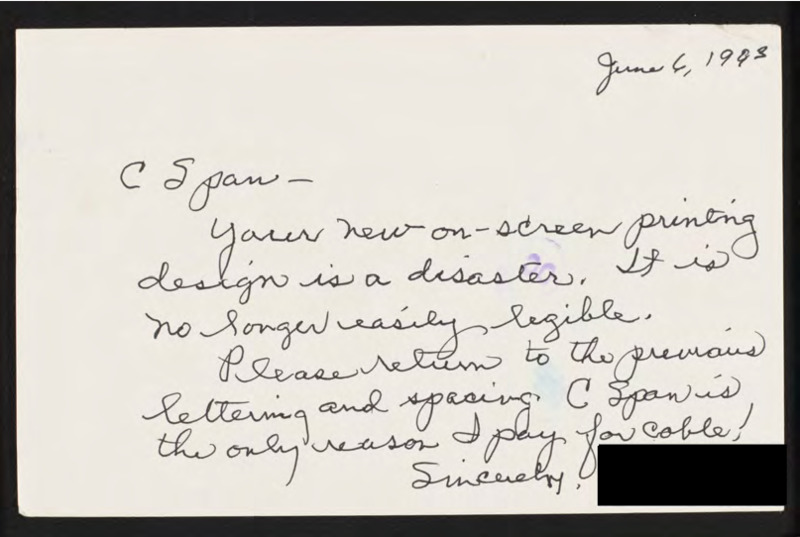 June 6, 1993
C Span —
Your new on-screen printing
design is a disaster. It is
no longer easily legible.
Please return to the previous
lettering and spacing. C Span is
the only reason I pay for cable!
Sincerely,